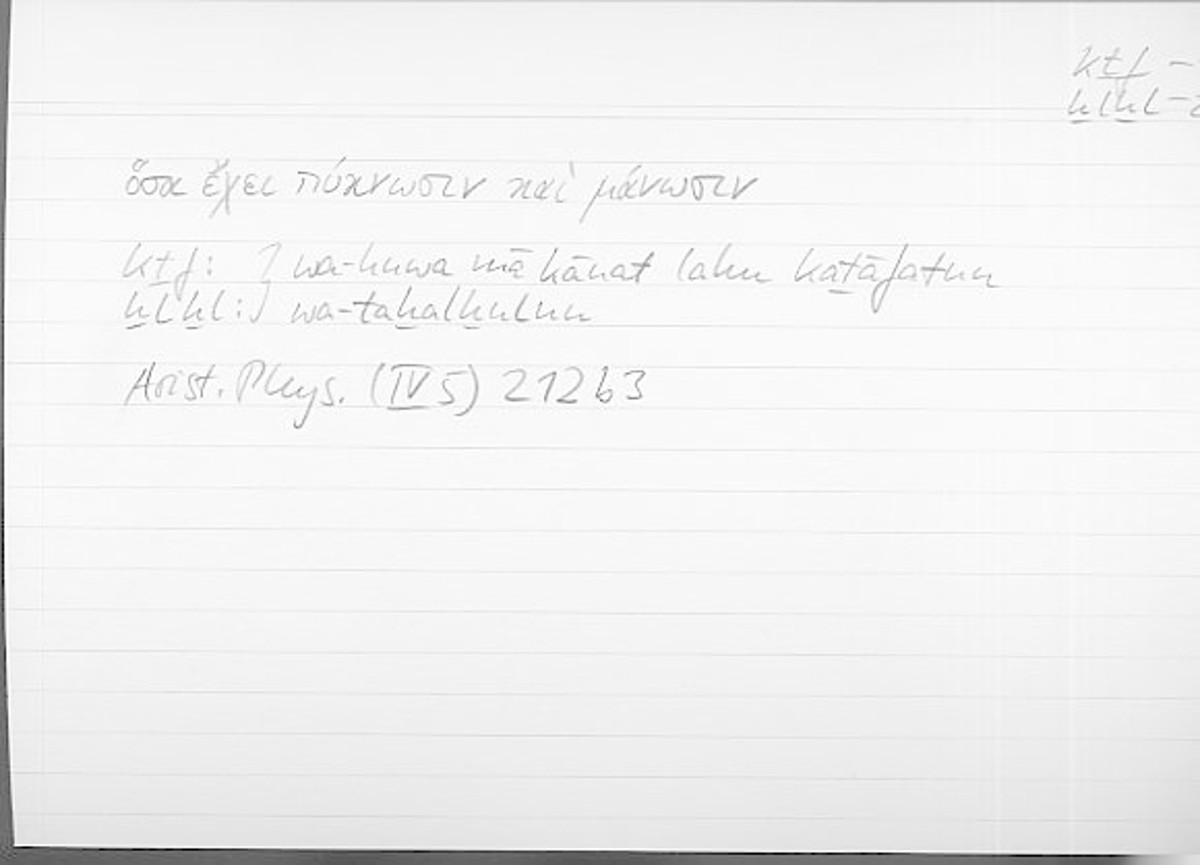 kṯf –
ḫlḫl –
ὅσα ἔχει πύκνωσιν καὶ μάνωσιν
kṯf: } wa-huwa mā kānat lahu kaṯāfatun
ḫlḫl: } wa-taḫalḫulun
Arist. Phys. (IV 5) 212 b 3